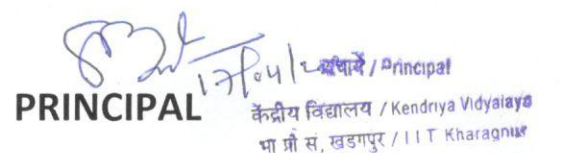 17/04/2
प्राचार्य / Principal
PRINCIPAL
केंद्रीय विद्यालय / Kendriya Vidyalaya
भा प्रौ सं, खडगपुर / I I T Kharagpur